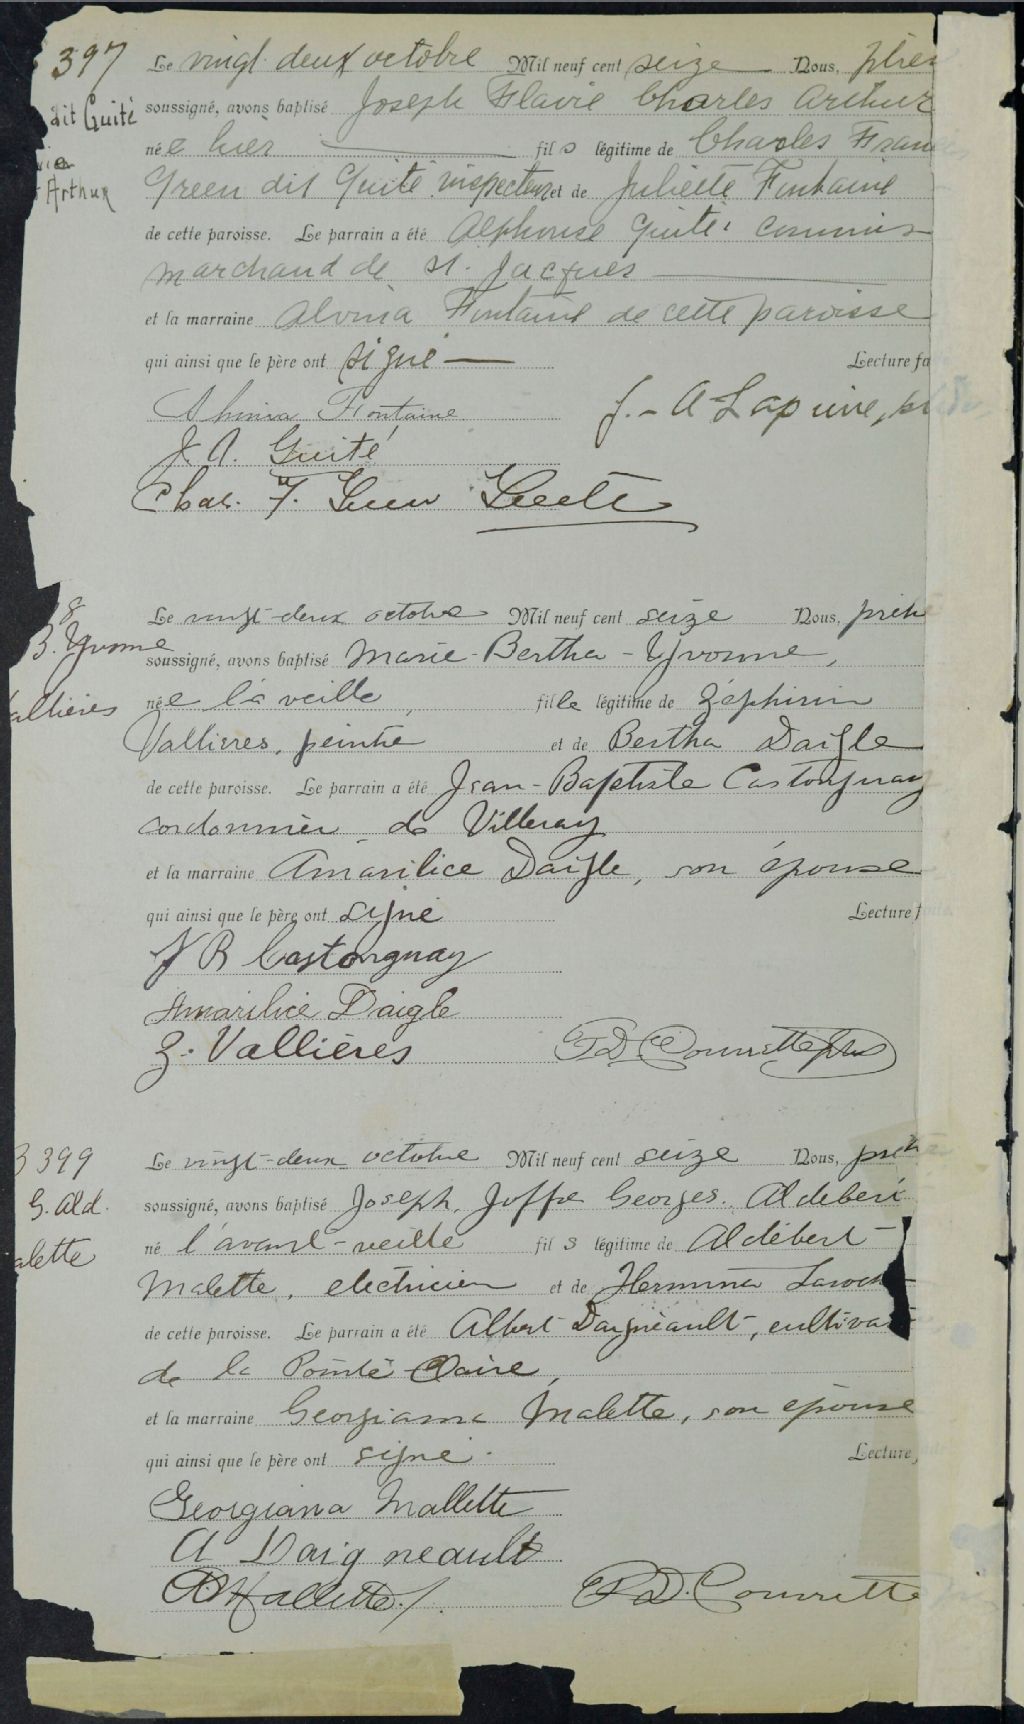 397
Le vingt deux octobre Mil neuf cent seize Nous, prêtr
dit Guité soussigné, avons baptisé Joseph Flavie Charles Arthur
né e hier fil s légitime de Charles Fran
Arthur Green dit Guité inspecteur et de Juliette Fontaine
de cette paroisse. Le parrain a été Alphonse Guité commis
marchand de St. Jacques
et la marraine Alvina Fontaine de cette paroisse
qui ainsi que le père ont signé Lecture fa
Alvina Fontaine J.-A Lapierre, pr
J. A. Guité
Chas. F. Green Guité
8
Le vingt-deux octobre Mil neuf cent seize Nous, prêtre
B. Yvonne soussigné, avons baptisé Marie-Bertha-Yvonne,
allières née la veille, fille légitime de Zéphirin
Vallières, peintre et de Bertha Daigle
de cette paroisse. Le parrain a été Jean-Baptiste Castonguay
cordonnier de Villeray
et la marraine Amarilice Daigle, son épouse
qui ainsi que le père ont signé Lecture f
J B Castonguay
Amarilice Daigle
Z. Vallières F. D. Courrette ptre
B 399
Le vingt-deux octobre Mil neuf cent seize Nous, prêt
G. Ald. soussigné, avons baptisé Joseph, Joffre Georges, Aldebert
né l'avant-veille fil s légitime de Aldébert
alette
Malette, electricien et de Hermina Laroch
de cette paroisse. Le parrain a été Albert Daigneault, cultiva
de la Pointe-Claire,
et la marraine Georgiana Malette, son épouse
qui ainsi que le père ont signé. Lecture,
Georgiana Mallette
A Daigneault
A. Mallette. F. D. Courrette